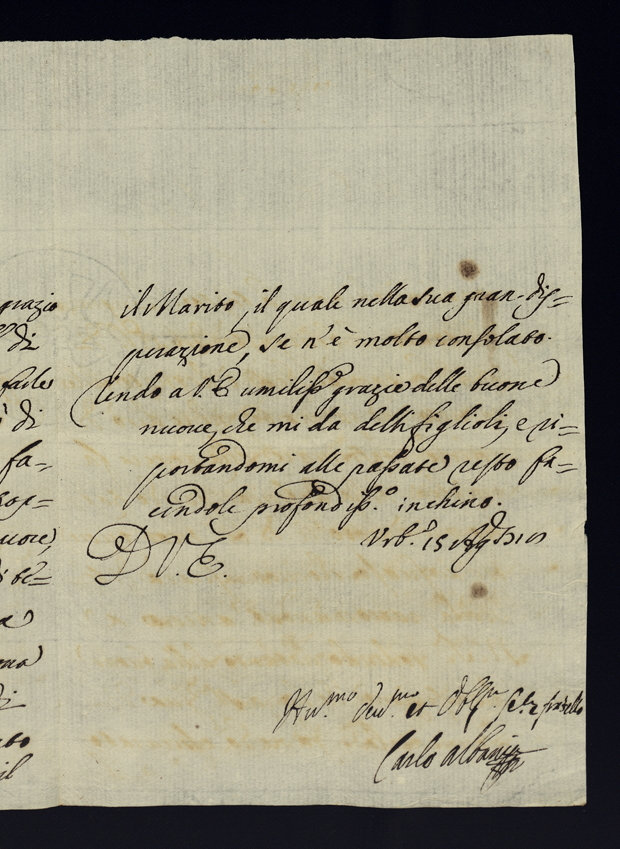 grazie
di
facile
di
fa=
uore,
a
il
il Marito, il quale nella sua gran dis=
perazione, se n'è molto consolato.
Rendo a V. E. umiliss.e grazie delle buone
nuove, che mi da delli figlioli, e ri=
portandomi alle passate resto fa=
cendole profondiss.o inchino.
D V. E.
Urb.o 15 Ag.o
Hu.mo Deu.mo et Obb.mo fratello
Carlo Albani